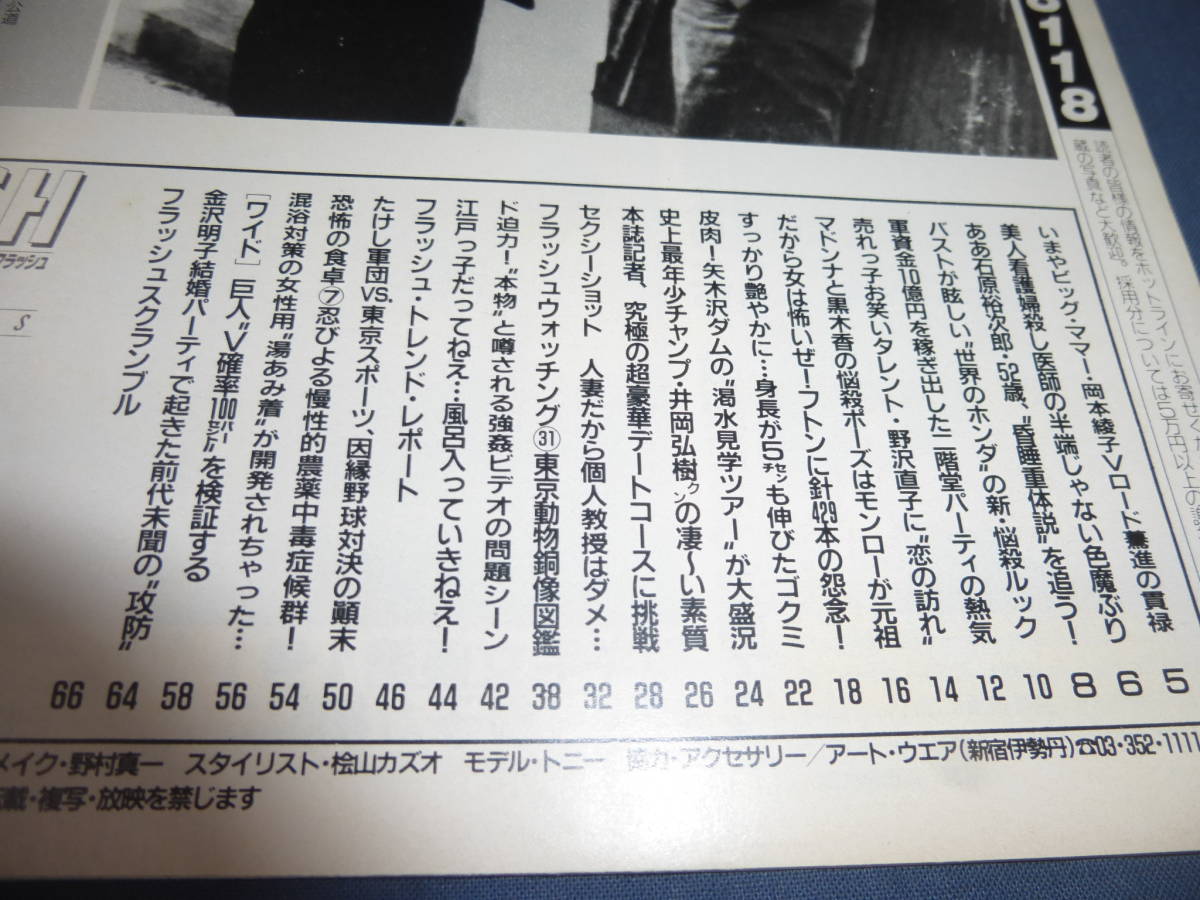 6118
読者の皆様の情報をホットラインにお寄せく
蔵の写真など大歓迎。採用分については5万円以上の謝
いまやビッグ・ママー・岡本綾子Vロード驀進の貫禄 5
美人看護婦殺し医師の半端じゃない色魔ぶり 6
ああ石原裕次郎・52歳、“昏睡重体説”を追う! 8
バストが眩しい“世界のホンダ”の新・悩殺ルック 10
軍資金10億円を稼ぎ出した二階堂パーティの熱気 12
売れっ子お笑いタレント・野沢直子に“恋の訪れ” 14
マドンナと黒木香の悩殺ポーズはモンローが元祖 16
だから女は怖いぜ!フトンに針429本の怨念! 18
すっかり艶やかに…身長が5センチも伸びたゴクミ 22
皮肉!矢木沢ダムの“渇水見学ツアー”が大盛況 24
史上最年少チャンプ・井岡弘樹クンの凄〜い素質 26
本誌記者、究極の超豪華デートコースに挑戦 28
セクシーショット 人妻だから個人教授はダメ… 32
フラッシュウォッチング㉛東京動物銅像図鑑 38
ド迫力!“本物”と噂される強姦ビデオの問題シーン 42
江戸っ子だってねえ…風呂入っていきねえ! 44
フラッシュ・トレンド・レポート 46
たけし軍団VS.東京スポーツ、因縁野球対決の顚末 50
恐怖の食卓⑦忍びよる慢性的農薬中毒症候群! 54
混浴対策の女性用“湯あみ着”が開発されちゃった… 56
[ワイド]巨人“V確率100パーセント”を検証する 58
金沢明子結婚パーティで起きた前代未聞の“攻防” 64
フラッシュスクランブル 66
SH
フラッシュ
S
メイク・野村真一 スタイリスト・桧山カズオ モデル・トニー 協力・アクセサリー/アート・ウエア(新宿伊勢丹)☎03・352・1111
転載・複写・放映を禁じます